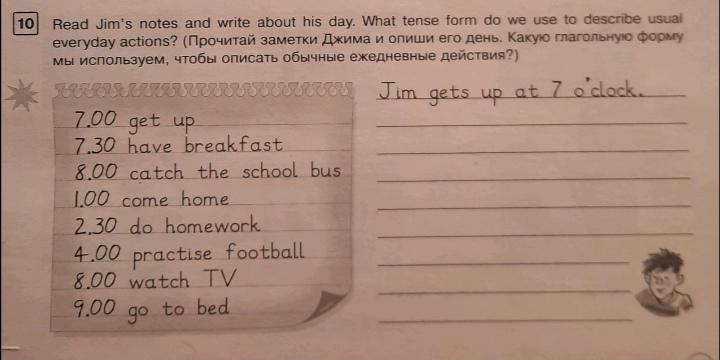 10 Read Jim's notes and write about his day. What tense form do we use to describe usual
everyday actions? (Прочитай заметки Джима и опиши его день. Какую глагольную форму
мы используем, чтобы описать обычные ежедневные действия?)
7.00 get up
7.30 have breakfast
8.00 catch the school bus
1.00 come home
2.30 do homework
4.00 practise football
8.00 watch TV
9.00 go to bed
Jim gets up at 7 o'clock.